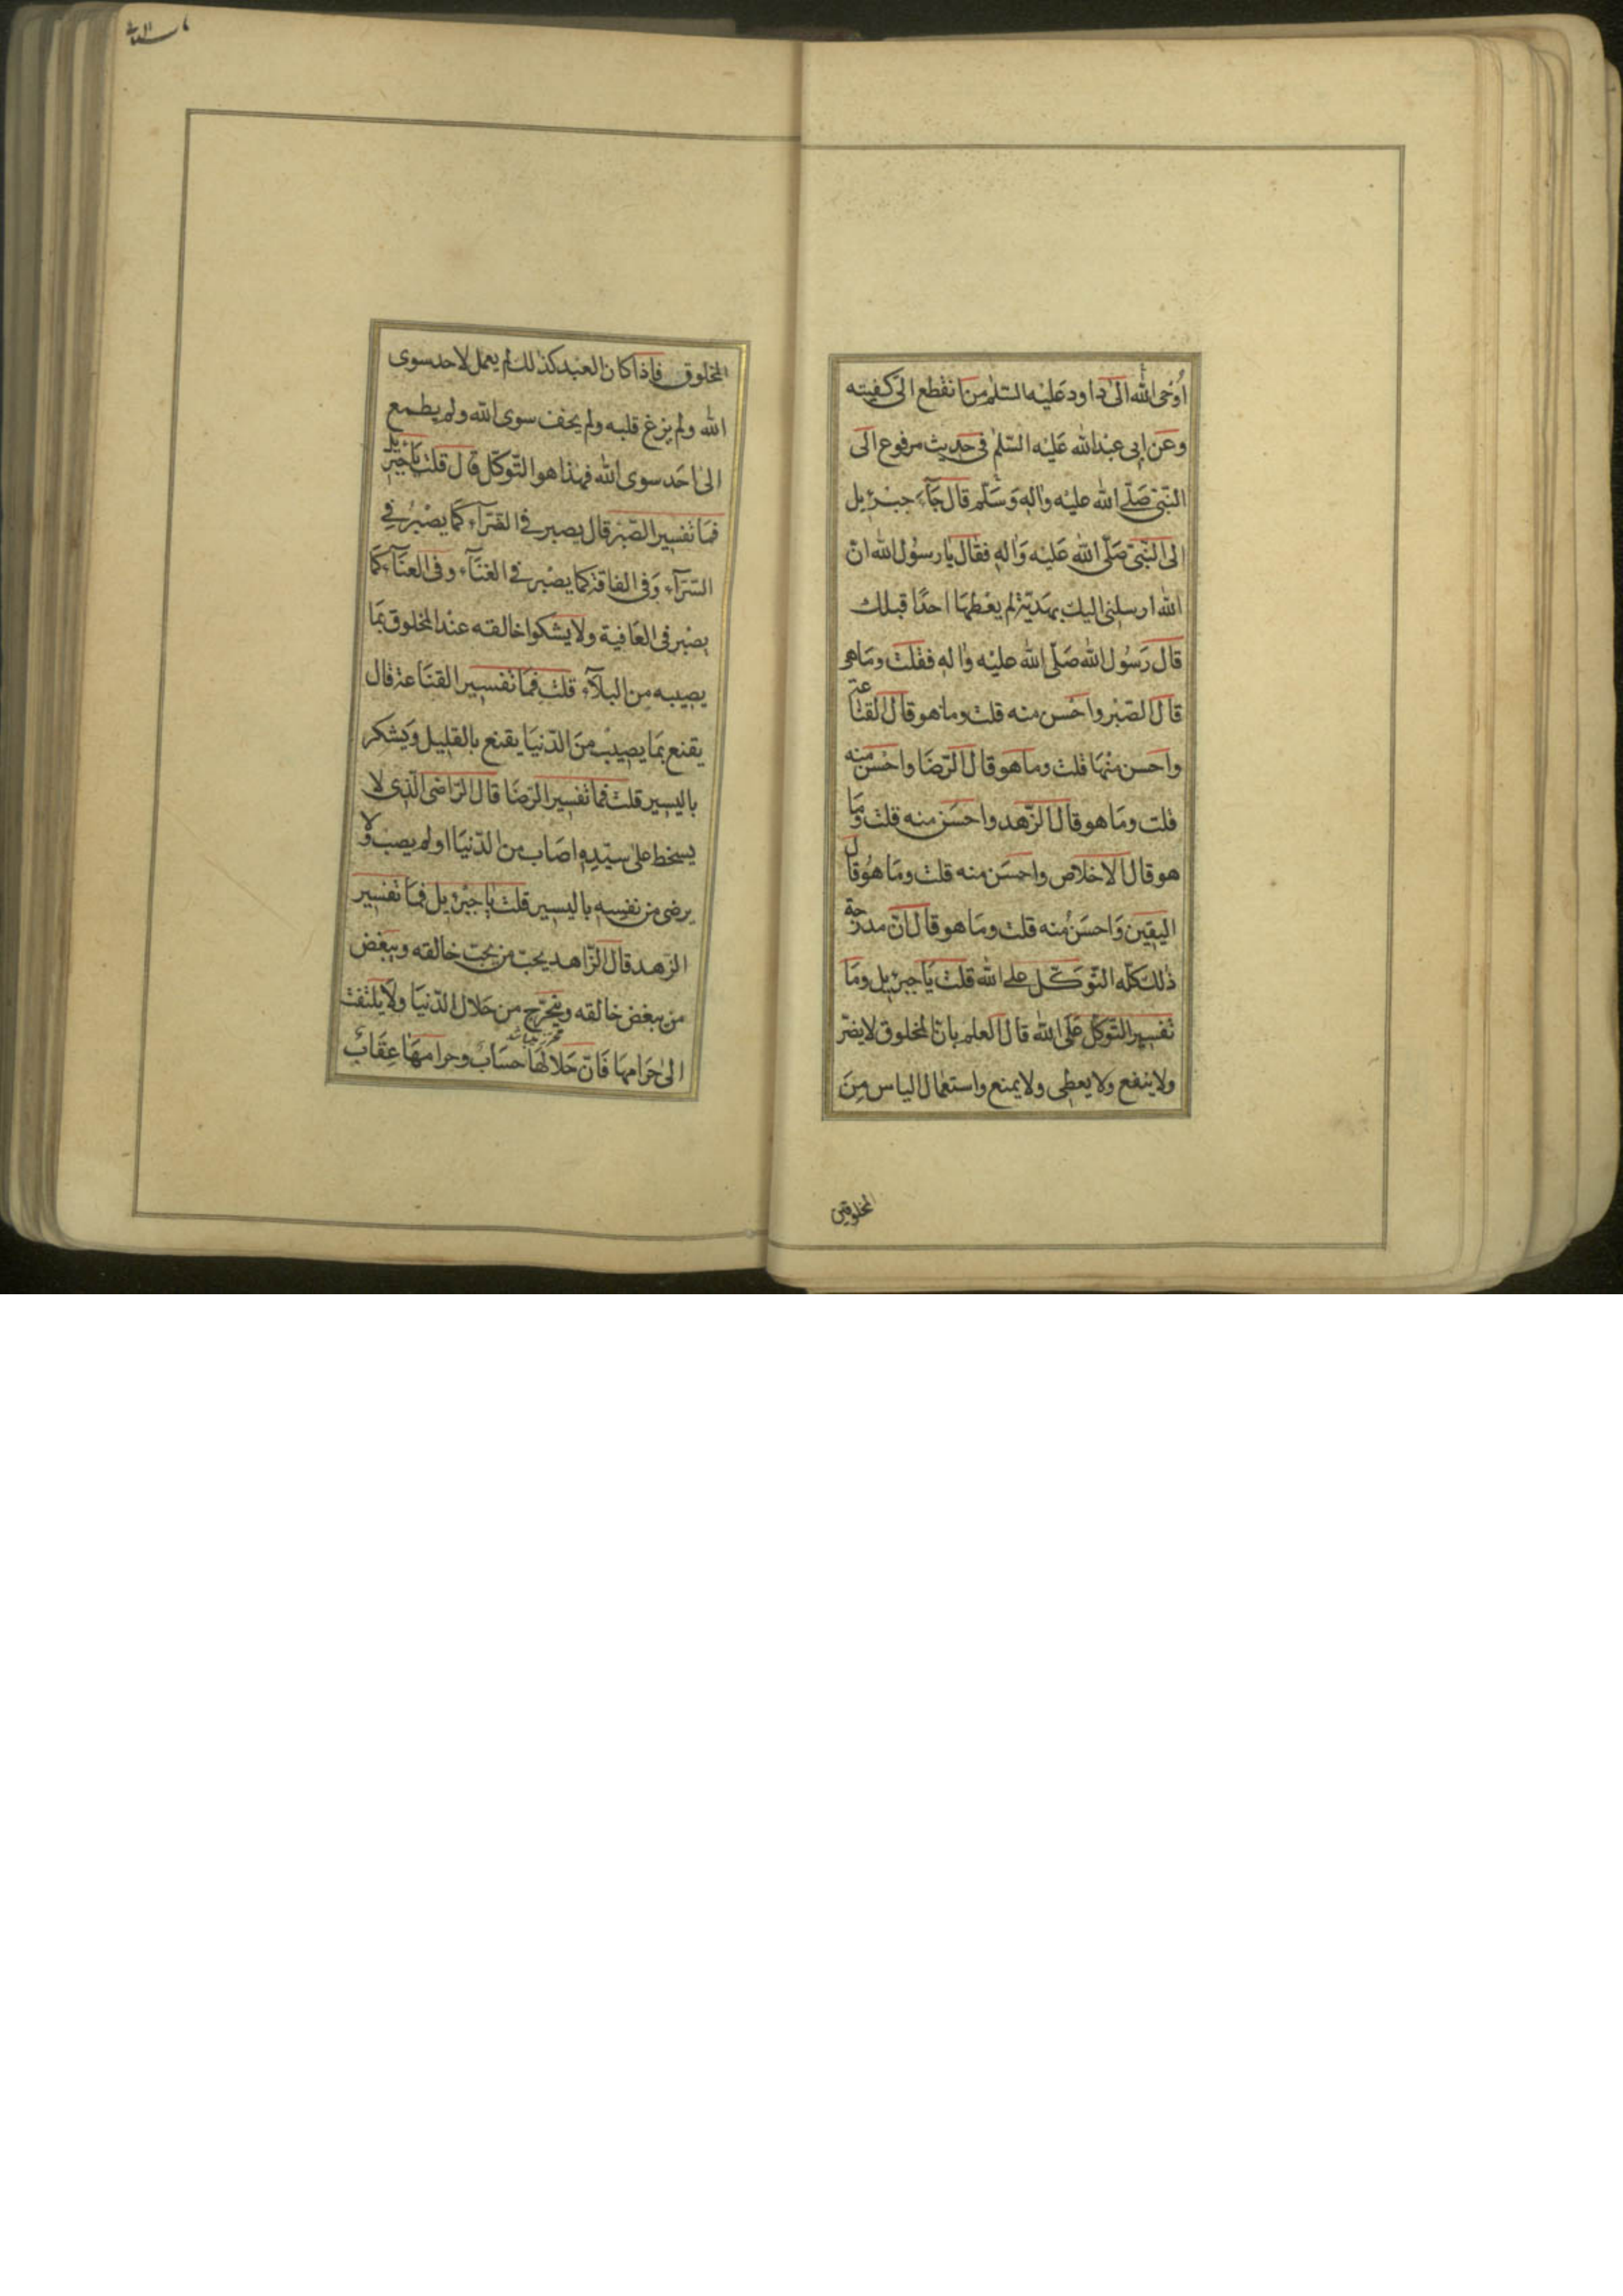 أوحى الله الى داود عليه السلم من انقطع الىّ كفيته
وعن ابى عبدالله عليه السّلم فى حديث مرفوع الى
النّبىّ صلّى الله عليه واله وسَلّم قال جَآء جبرئيل
الى النّبىّ صَلّى الله عَليه وَاله فقال يا رسول الله انّ
الله ارسلنى اليك بهديّة لم يعطها احدًا قبلك
قال رَسُول الله صَلّى الله عليه واله فقلت ومَا هو
قال الصّبر واحْسن منه قلت وما هو قال القناعة
واحسن منها قلت وما هو قال الرّضَا واحْسن منه
قلت ومَا هو قال الزّهد واحسَن منه قلت ومَا
هو قال الاخلاص واحسَن منه قلت ومَا هوُ قال
اليقين وَاحسَن منه قلت ومَا هو قال انّ مدرجة
ذلك كلّه التّوَكّل على الله قلت يَا جبرئيل ومَا
تفسير التّوكّل عَلَى الله قال العلم بانّ المخلوق لا يضرّ
ولا ينفع ولا يعطى ولا يمنع واستعمال الياس مِنَ
المخلوقين
المخلوق فاذا كان العبد كذلك لم يعمل لاحد سوى
الله ولم يزغ قلبه ولم يخف سوى الله ولم يطمع
الى احَد سوى الله فهذا هو التّوكّل قال قلت يَا جبرئيل
فمَا تفسير الصّبر قال يصبر فى الضّرّآء كمَا يصْبرُ فِي
السّرّآء وَفى الفاقة كما يصْبر فى الغنَآء وفى العنَآء كمَا
يصْبر فى العَافية ولا يشكوا خالقه عند المخلوق بمَا
يصيبه مِن البلآء قلت فمَا تفسير القنَاعة قال
يقنع بمَا يصيبُ منَ الدّنيَا يقنع بالقليل وَيشكر
باليسير قلت فما تفسير الرّضَا قال الرّاضى الّذى لا
يسخط على سيّده اصَاب من الدّنيَا او لم يصب ولا
يرضى من نفسه باليسير قلت يا جبرئيل فمَا تفسير
الزّهد قال الزّاهد يحبّ من يحبّ خالقه ويبغض
من يبغض خالقه ويتحرّج من حَلال الدّنيَا ولا يلتفت
الى حَرَامها فَانّ حَلالهَا حسَابٌ وحرامهَا عِقَابٌ